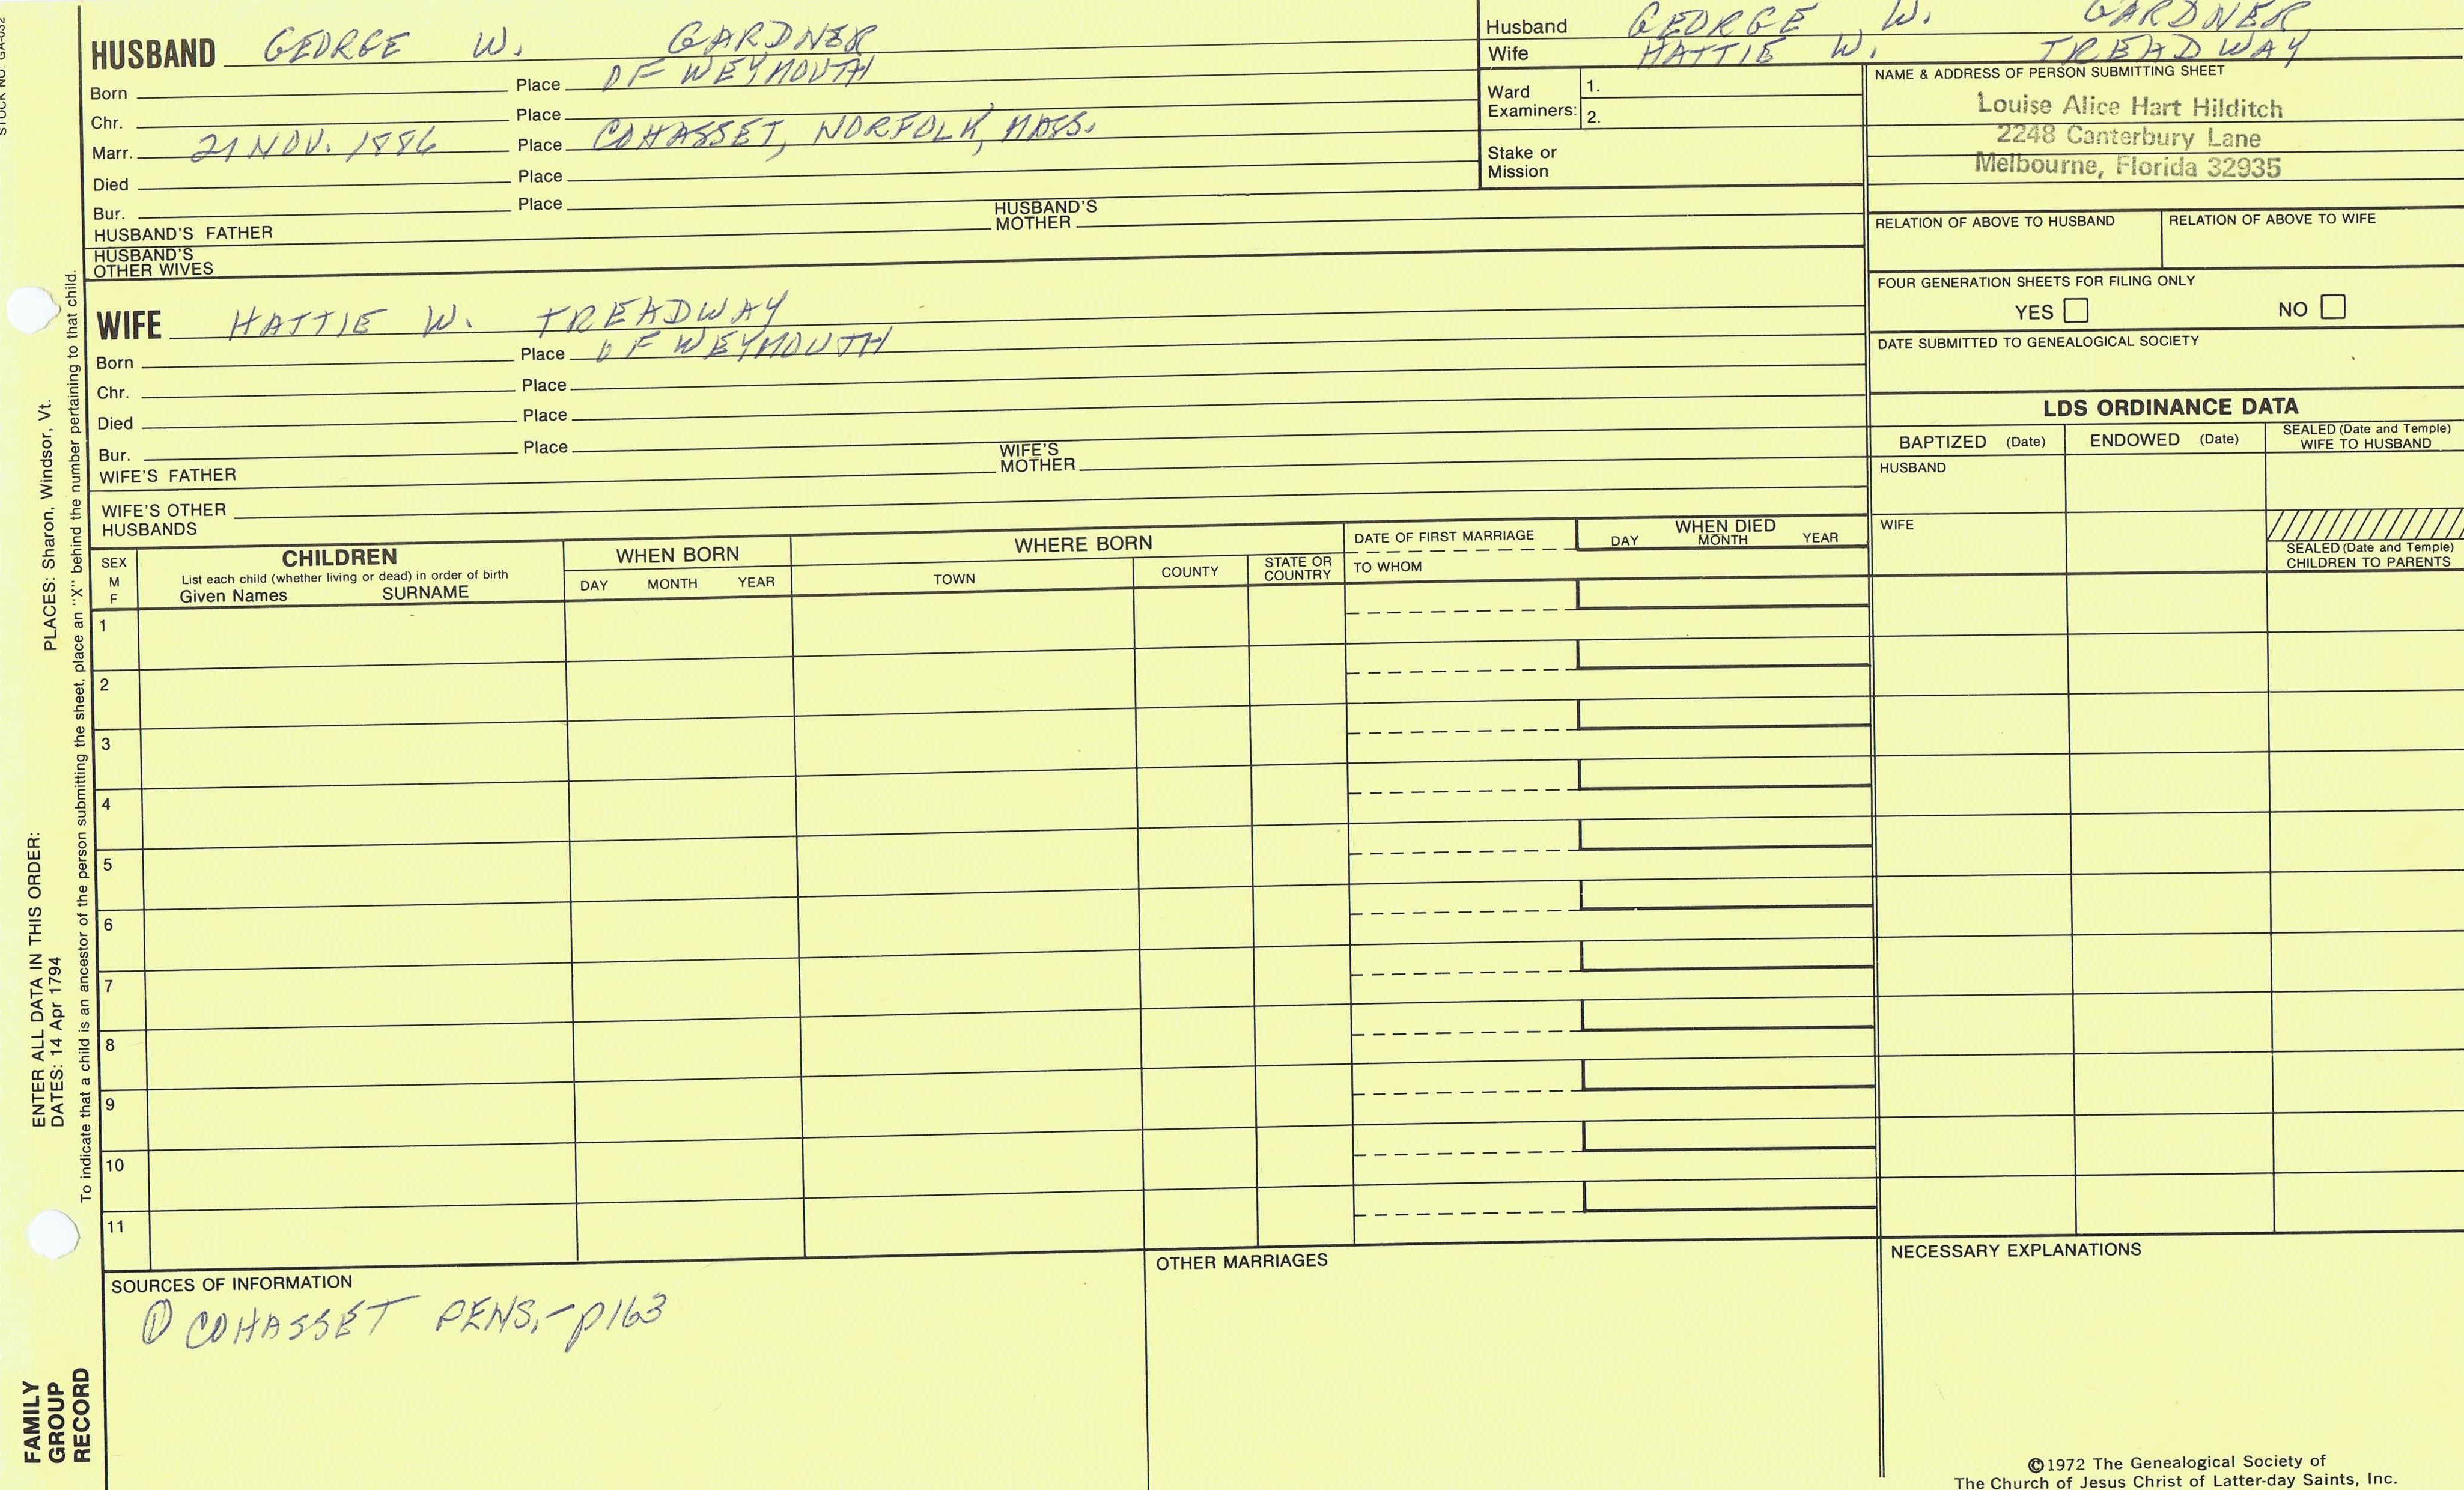 STOCK NO. GA-032
HUSBAND GEORGE W. GARDNER
Born Place OF WEYMOUTH
Chr. Place
Marr. 21 NOV. 1886 Place COHASSET, NORFOLK, MASS.
Died Place
Bur. Place
HUSBAND'S FATHER HUSBAND'S MOTHER
HUSBAND'S OTHER WIVES
Husband GEORGE W. GARDNER
Wife HATTIE W. TREADWAY
Ward Examiners: 1.
2.
Stake or Mission
NAME & ADDRESS OF PERSON SUBMITTING SHEET
Louise Alice Hart Hilditch
2248 Canterbury Lane
Melbourne, Florida 32935
RELATION OF ABOVE TO HUSBAND RELATION OF ABOVE TO WIFE
FOUR GENERATION SHEETS FOR FILING ONLY
YES NO
DATE SUBMITTED TO GENEALOGICAL SOCIETY
WIFE HATTIE W. TREADWAY
Born Place OF WEYMOUTH
Chr. Place
Died Place
Bur. Place
WIFE'S FATHER WIFE'S MOTHER
WIFE'S OTHER HUSBANDS
LDS ORDINANCE DATA
BAPTIZED (Date) ENDOWED (Date) SEALED (Date and Temple) WIFE TO HUSBAND
HUSBAND
WIFE
SEALED (Date and Temple) CHILDREN TO PARENTS
SEX M F
CHILDREN
List each child (whether living or dead) in order of birth
Given Names SURNAME
WHEN BORN
DAY MONTH YEAR
WHERE BORN
TOWN COUNTY STATE OR COUNTRY
DATE OF FIRST MARRIAGE
TO WHOM
WHEN DIED
DAY MONTH YEAR
1
2
3
4
5
6
7
8
9
10
11
SOURCES OF INFORMATION
① COHASSET RENS,-p163
OTHER MARRIAGES
NECESSARY EXPLANATIONS
©1972 The Genealogical Society of
The Church of Jesus Christ of Latter-day Saints, Inc.
FAMILY
GROUP
RECORD
ENTER ALL DATA IN THIS ORDER:
DATES: 14 Apr 1794
PLACES: Sharon, Windsor, Vt.
To indicate that a child is an ancestor of the person submitting the sheet, place an "X" behind the number pertaining to that child.